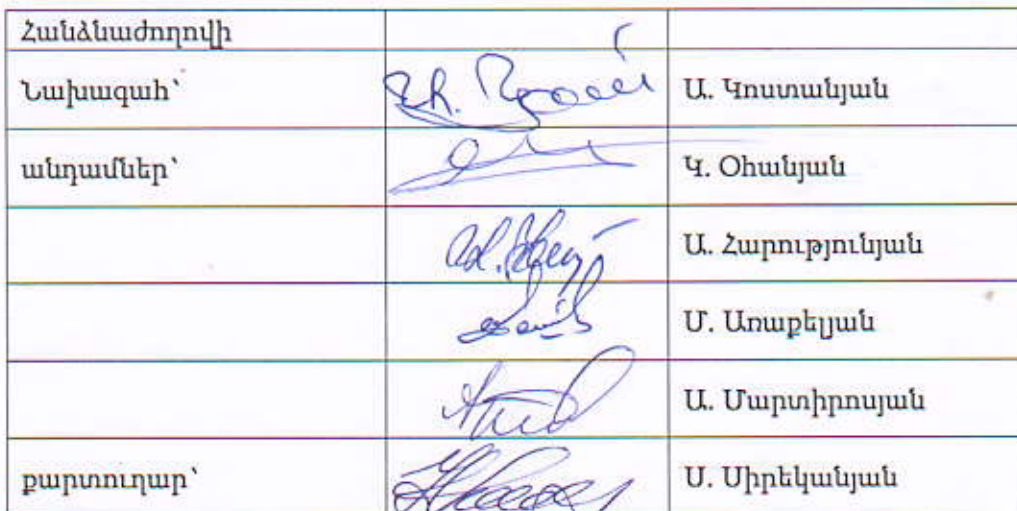 Հանձնաժողովի
Նախագահ՝ Ա. Կոստանյան
անդամներ՝ Կ. Օհանյան
Ա. Հարությունյան
Մ. Առաքելյան
Ա. Մարտիրոսյան
քարտուղար՝ Ս. Սիրեկանյան